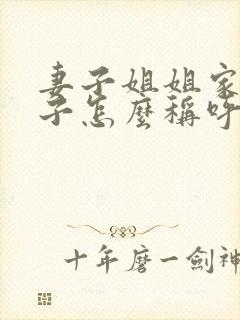 妻子姐姐家
子怎麼稱呼
十年磨一劍神